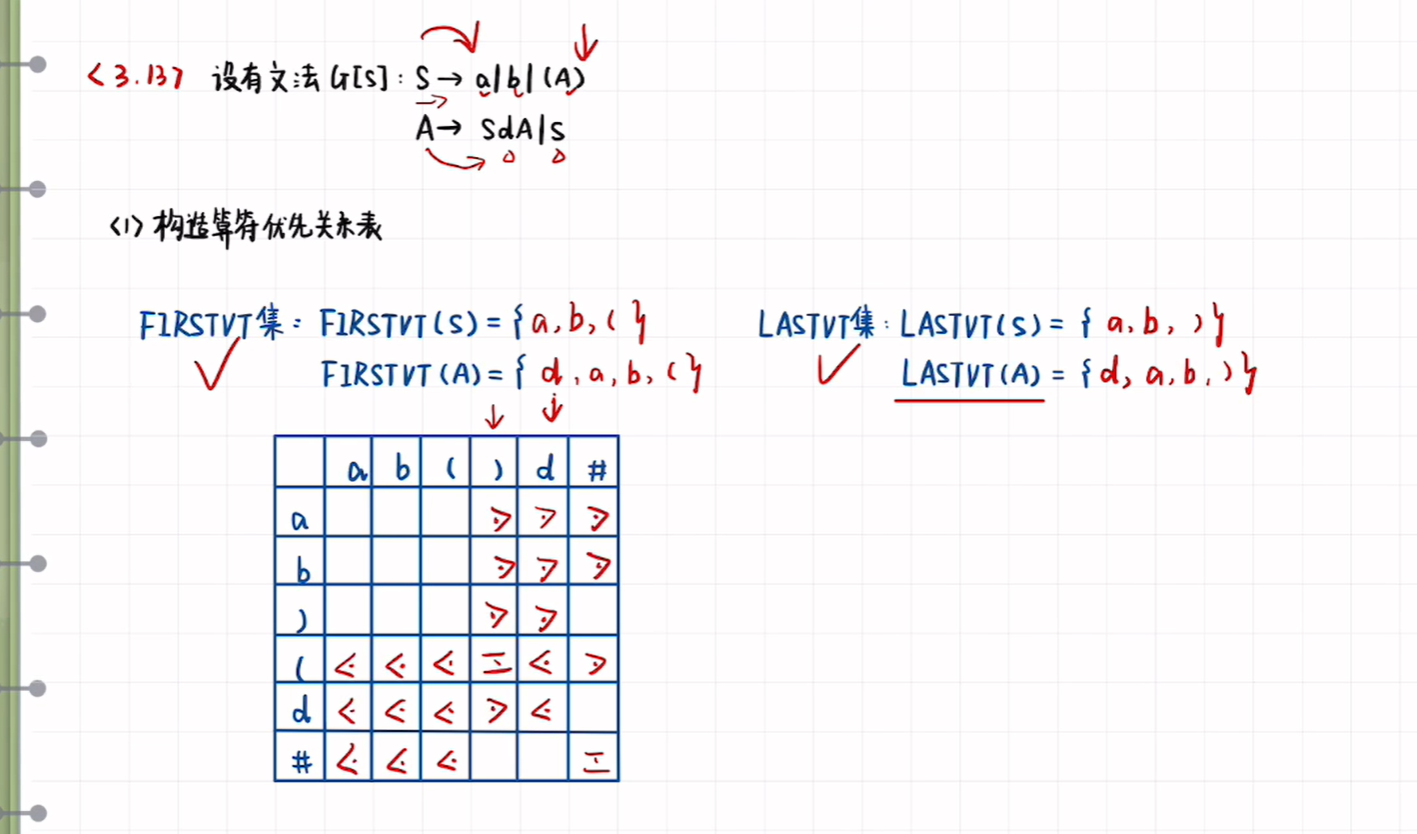 <3.13> 设有文法G[S]: S→ a|b|(A)
A→ SdA|S
<1> 构造算符优先关系表
FIRSTVT集: FIRSTVT(S)={a,b,(}
LASTVT集: LASTVT(S)={a,b,)}
FIRSTVT(A)={d,a,b,(}
LASTVT(A)={d,a,b,)}
a b ( ) d #
a ⋗ ⋗ ⋗
b ⋗ ⋗ ⋗
) ⋗ ⋗
( ⋖ ⋖ ⋖ ≐ ⋖ ⋗
d ⋖ ⋖ ⋖ ⋗ ⋖
# ⋖ ⋖ ⋖ ≐